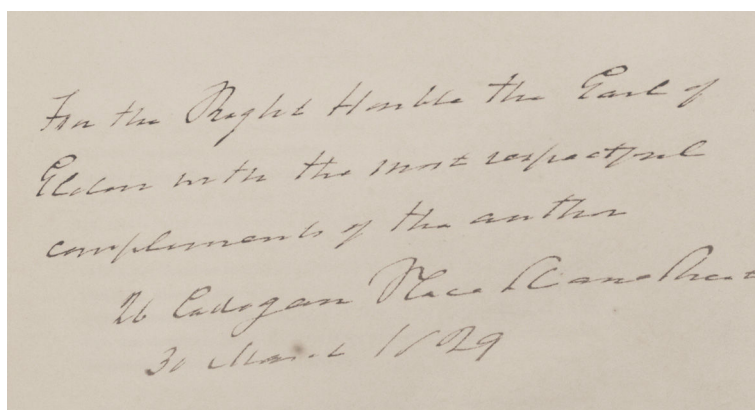 For the Right Honble the Earl of
Eldon with the most respectful
compliments of the author
26 Cadogan Place Sloane Street
30 March 1829